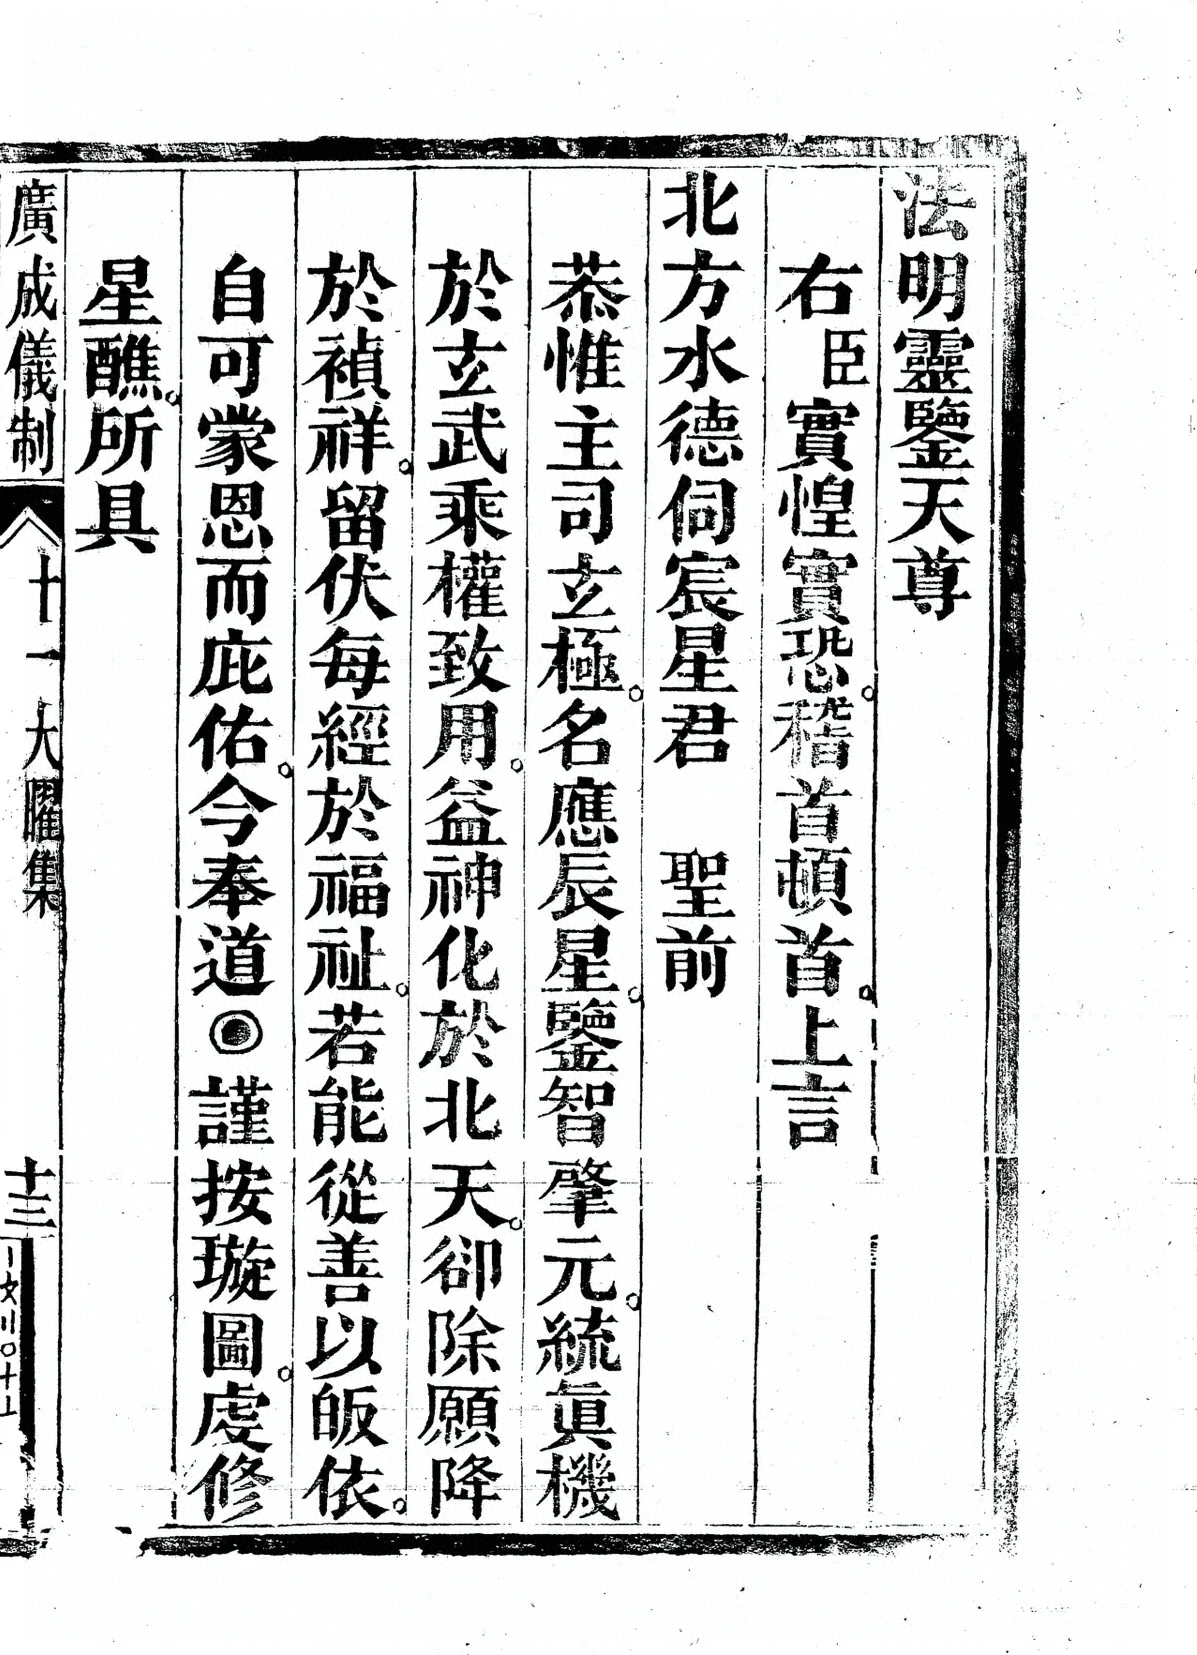 法明靈鑒天尊
右臣實惶實恐。稽首頓首。上言
北方水德伺宸星君　聖前
恭惟主司玄極。名應辰星。鑒智肇元。統眞機
於玄武乘權致用。益神化於北天。卻除願降
於禎祥。留伏每經於福祉。若能從善以皈依。
自可蒙恩而庇佑。今奉道◉謹按璇圖。虔修
星醮。所具
廣成儀制　十一大曜集　十三